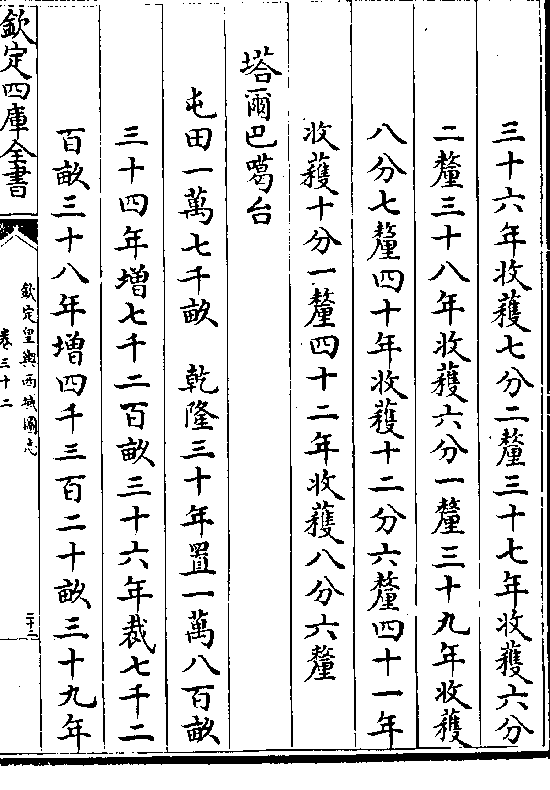 三十六年收獲七分二釐三十七年收獲六分
二釐三十八年收獲六分一釐三十九年收獲
八分七釐四十年收獲十二分六釐四十一年
收獲十分一釐四十二年收獲八分六釐
塔爾巴噶台
屯田一萬七千畝　乾隆三十年置一萬八百畝
三十四年增七千二百畝三十六年裁七千二
百畝三十八年增四千三百二十畝三十九年
欽定四庫全書
欽定皇輿西域圖志
卷三十二